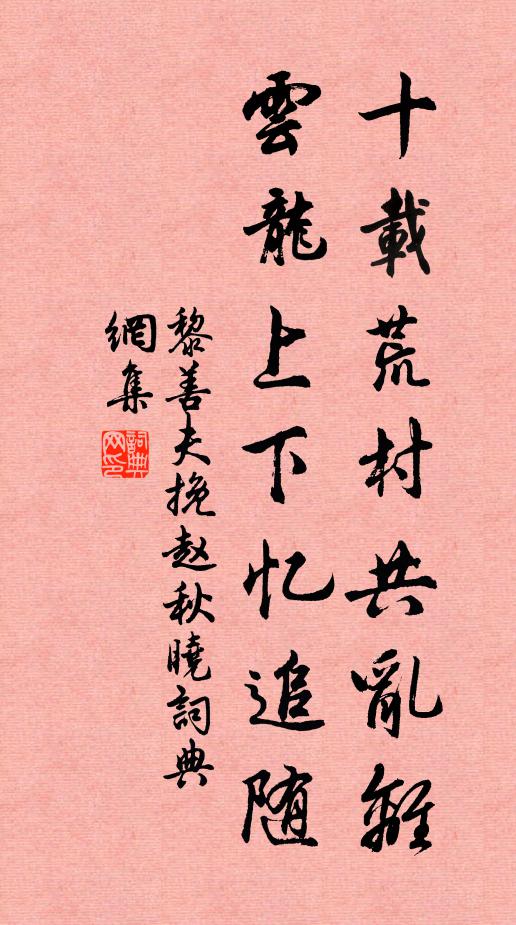 十載荒村共亂離
雲龍上下忆追随
黎善夫挽赵秋曉詞典
網集
詞典网印